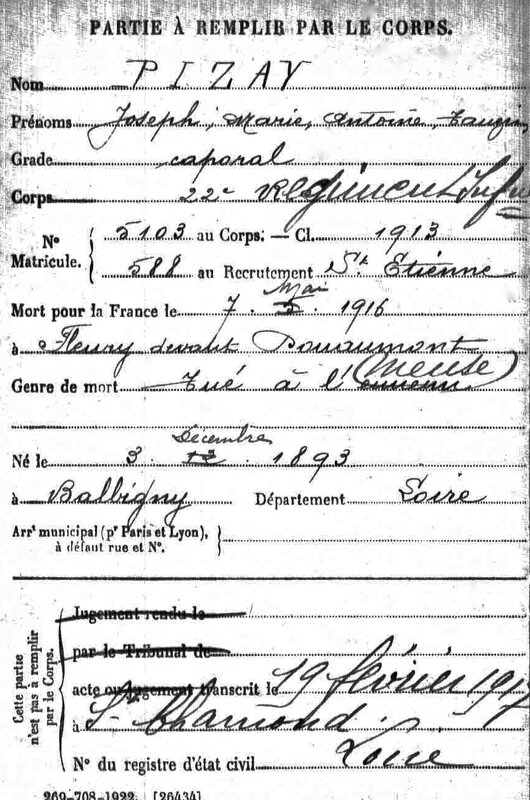 PARTIE À REMPLIR PAR LE CORPS.
Nom PIZAY
Prénoms Joseph, Marie, Antoine,
Grade caporal
Corps 22e Régiment Inf
N° Matricule. { 5103 au Corps. — Cl. 1913
588 au Recrutement St Etienne
Mort pour la France le 7 Mai 1916
à Fleury devant Douaumont
(Meuse)
Genre de mort Tué à l'ennemi
Né le 3 Décembre 1893
à Balbigny Département Loire
Arrt municipal (pr Paris et Lyon),
à défaut rue et N°.
Cette partie n'est pas à remplir par le Corps.
Jugement rendu le
par le Tribunal de
acte ou jugement transcrit le 19 février 1917
à St Chamond.
Loire
N° du registre d'état civil
269-708-1922. [26434]